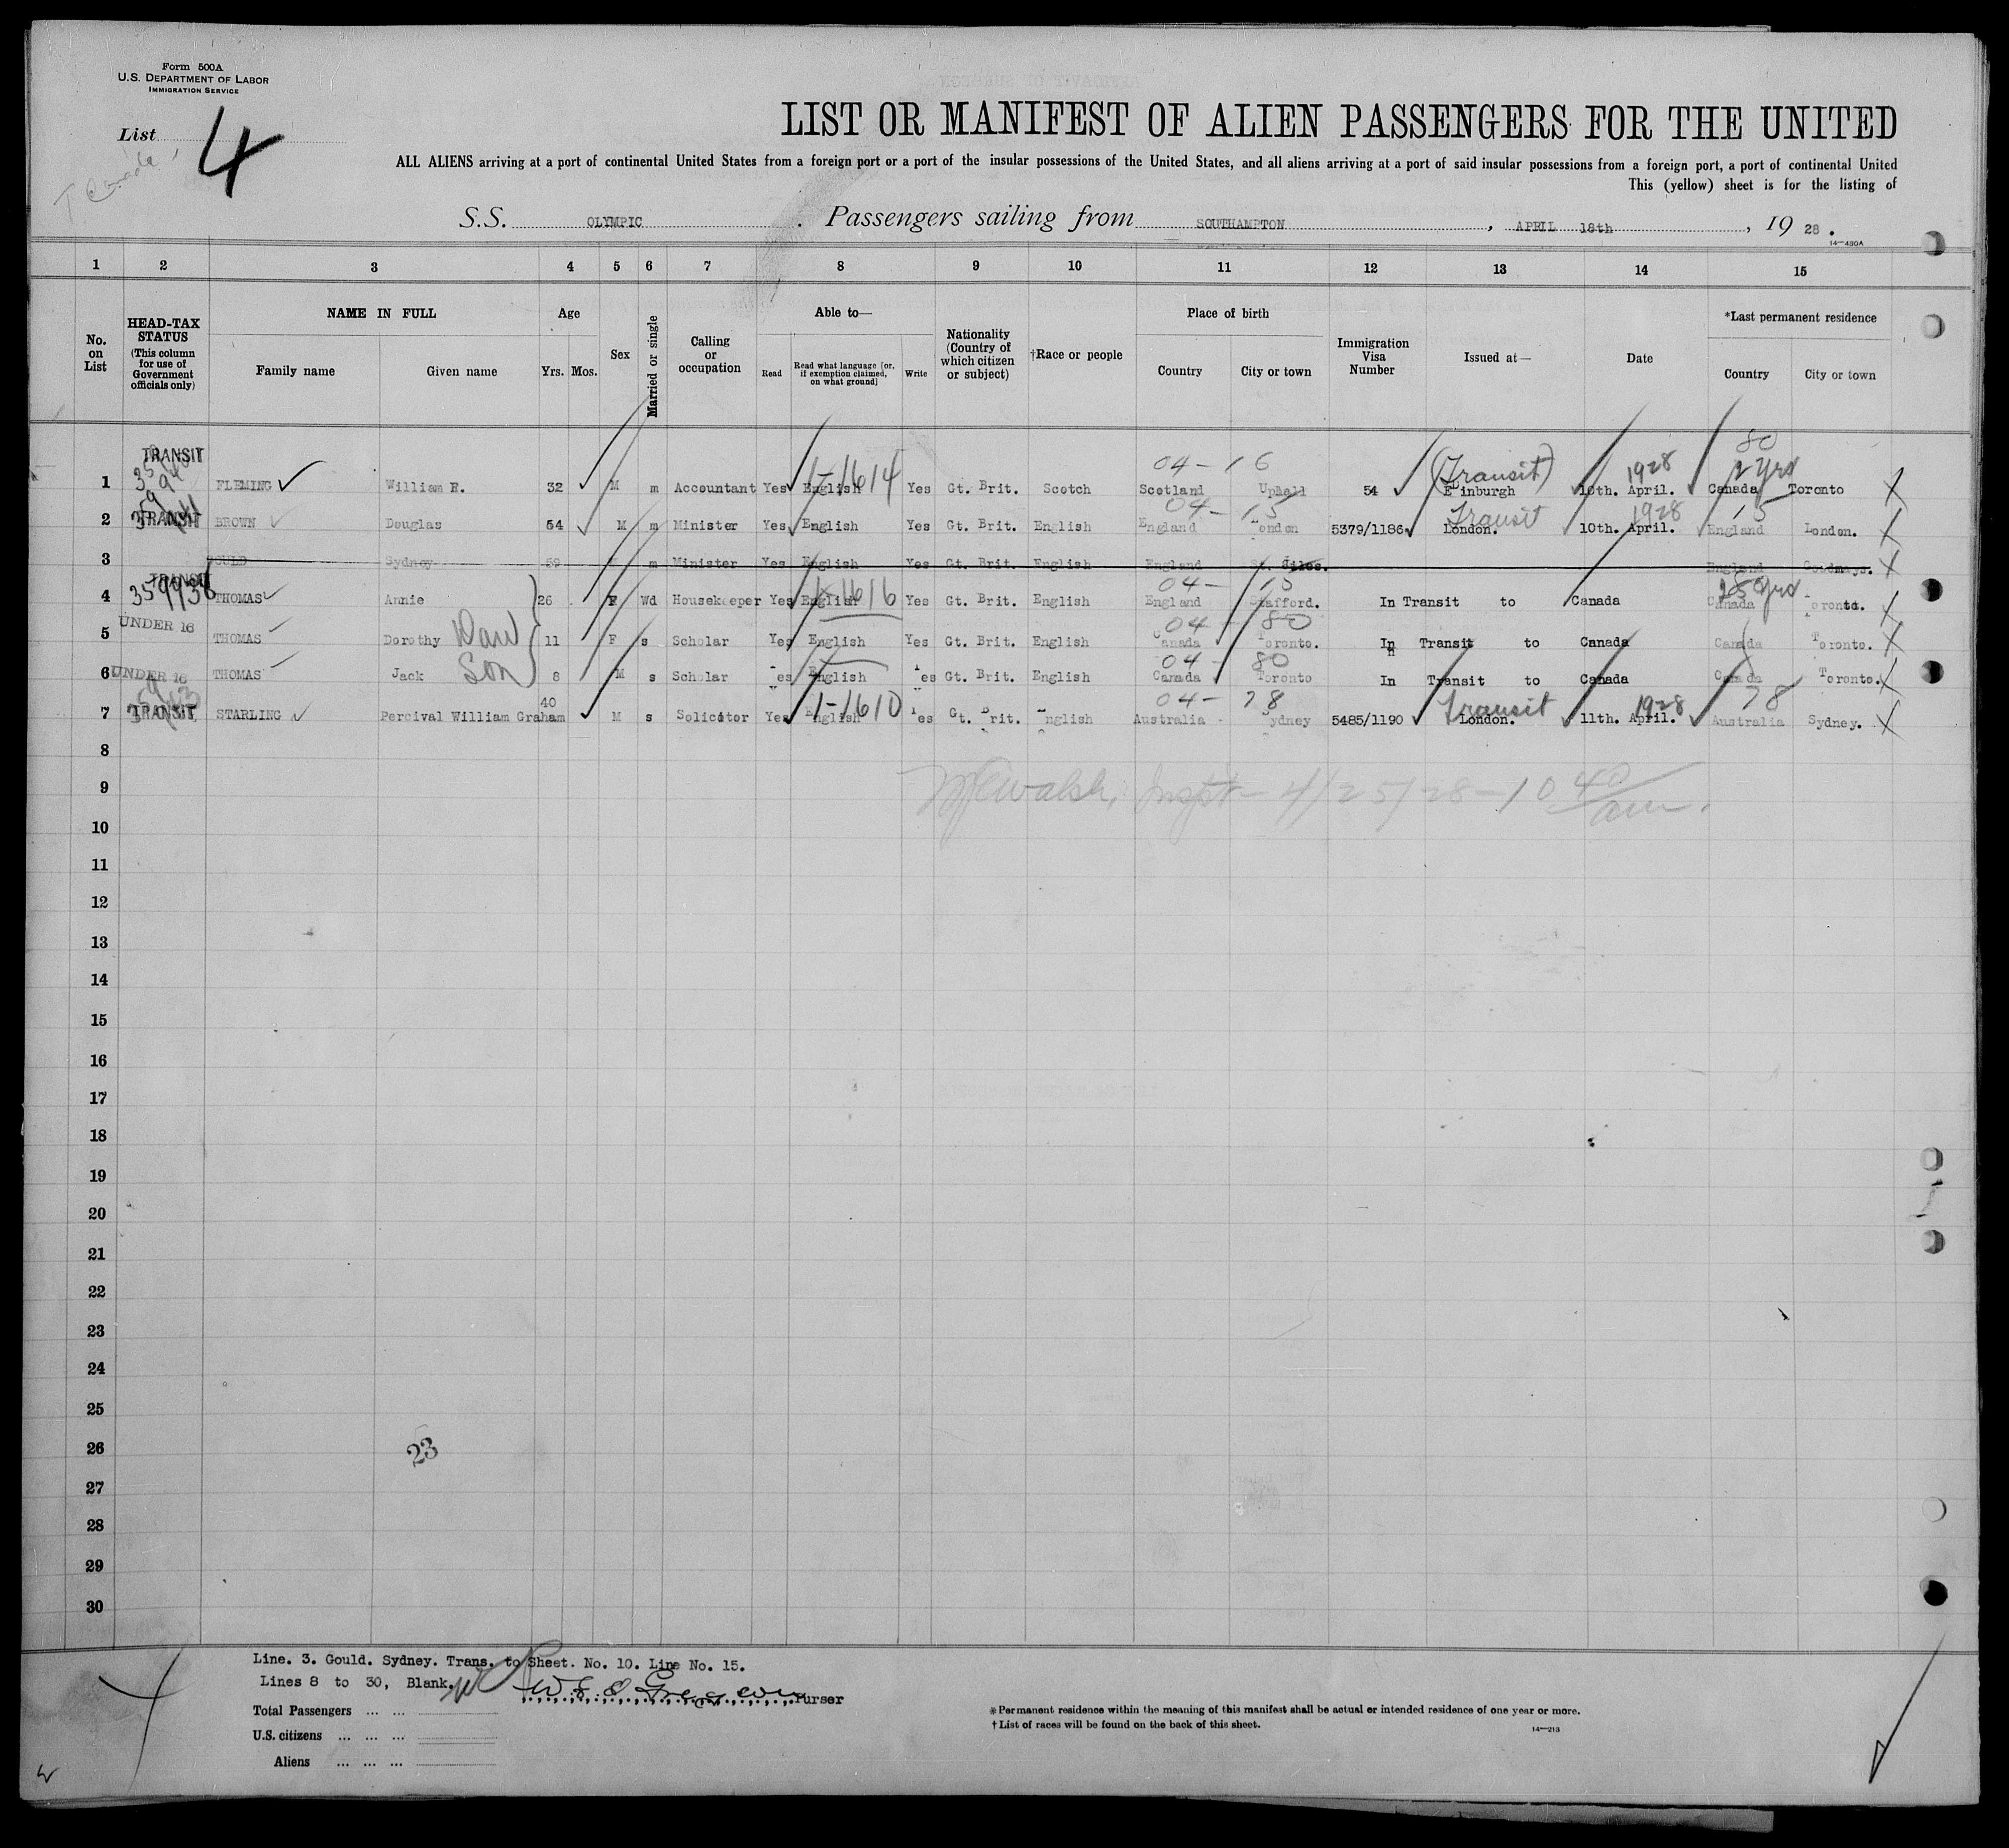 Form 500A
U.S. DEPARTMENT OF LABOR
IMMIGRATION SERVICE
List 4
T Canada
LIST OR MANIFEST OF ALIEN PASSENGERS FOR THE UNITED
ALL ALIENS arriving at a port of continental United States from a foreign port or a port of the insular possessions of the United States, and all aliens arriving at a port of said insular possessions from a foreign port, a port of continental United
This (yellow) sheet is for the listing of
S.S. OLYMPIC. Passengers sailing from SOUTHAMPTON, APRIL 18th, 19 28.
14—430A
1 2 3 4 5 6 7 8 9 10 11 12 13 14 15
No. on List
HEAD-TAX STATUS (This column for use of Government officials only)
NAME IN FULL
Family name Given name
Age
Yrs. Mos.
Sex
Married or single
Calling or occupation
Able to—
Read Read what language [or, if exemption claimed, on what ground] Write
Nationality (Country of which citizen or subject)
†Race or people
Place of birth
Country City or town
Immigration Visa Number
Issued at—
Date
*Last permanent residence
Country City or town
TRANSIT 1-1614 04-16 (Transit) 1928 80 2 Yrs
1 FLEMING William R. 32 M m Accountant Yes English Yes Gt. Brit. Scotch Scotland Uphall 54 Edinburgh 10th. April. Canada Toronto
04-15 Transit 1928 15
2 TRANSIT BROWN Douglas 54 M m Minister Yes English Yes Gt. Brit. English England London 5379/1186 London. 10th. April. England London.
3 GOULD Sydney 59 m Minister Yes English Yes Gt. Brit. English England St. Giles. England Goodmays.
TRANSIT 359938 1-1616 04-15 Yrs
4 THOMAS Annie 26 F Wd Housekeeper Yes English Yes Gt. Brit. English England Stafford. In Transit to Canada Canada Toronto.
UNDER 16 04-80
5 THOMAS Dorothy Dau 11 F s Scholar Yes English Yes Gt. Brit. English Canada Toronto. In Transit to Canada Canada Toronto.
04-80
6 UNDER 16 THOMAS Jack Son 8 M s Scholar Yes English Yes Gt. Brit. English Canada Toronto In Transit to Canada Canada Toronto.
40 1-1610 04-78 Transit 1928 78
7 TRANSIT STARLING Percival William Graham M s Solicitor Yes English Yes Gt. Brit. English Australia Sydney 5485/1190 London. 11th. April. Australia Sydney.
8
Walsh, Inspt - 4/25/28 - 10 40 am.
9
10
11
12
13
14
15
16
17
18
19
20
21
22
23
24
25
26 23
27
28
29
30
Line. 3. Gould. Sydney. Trans. to Sheet. No. 10. Line No. 15.
Lines 8 to 30, Blank.
Purser
Total Passengers ... ...
U.S. citizens ... ... ...
Aliens ... ... ...
*Permanent residence within the meaning of this manifest shall be actual or intended residence of one year or more.
†List of races will be found on the back of this sheet.
14—213